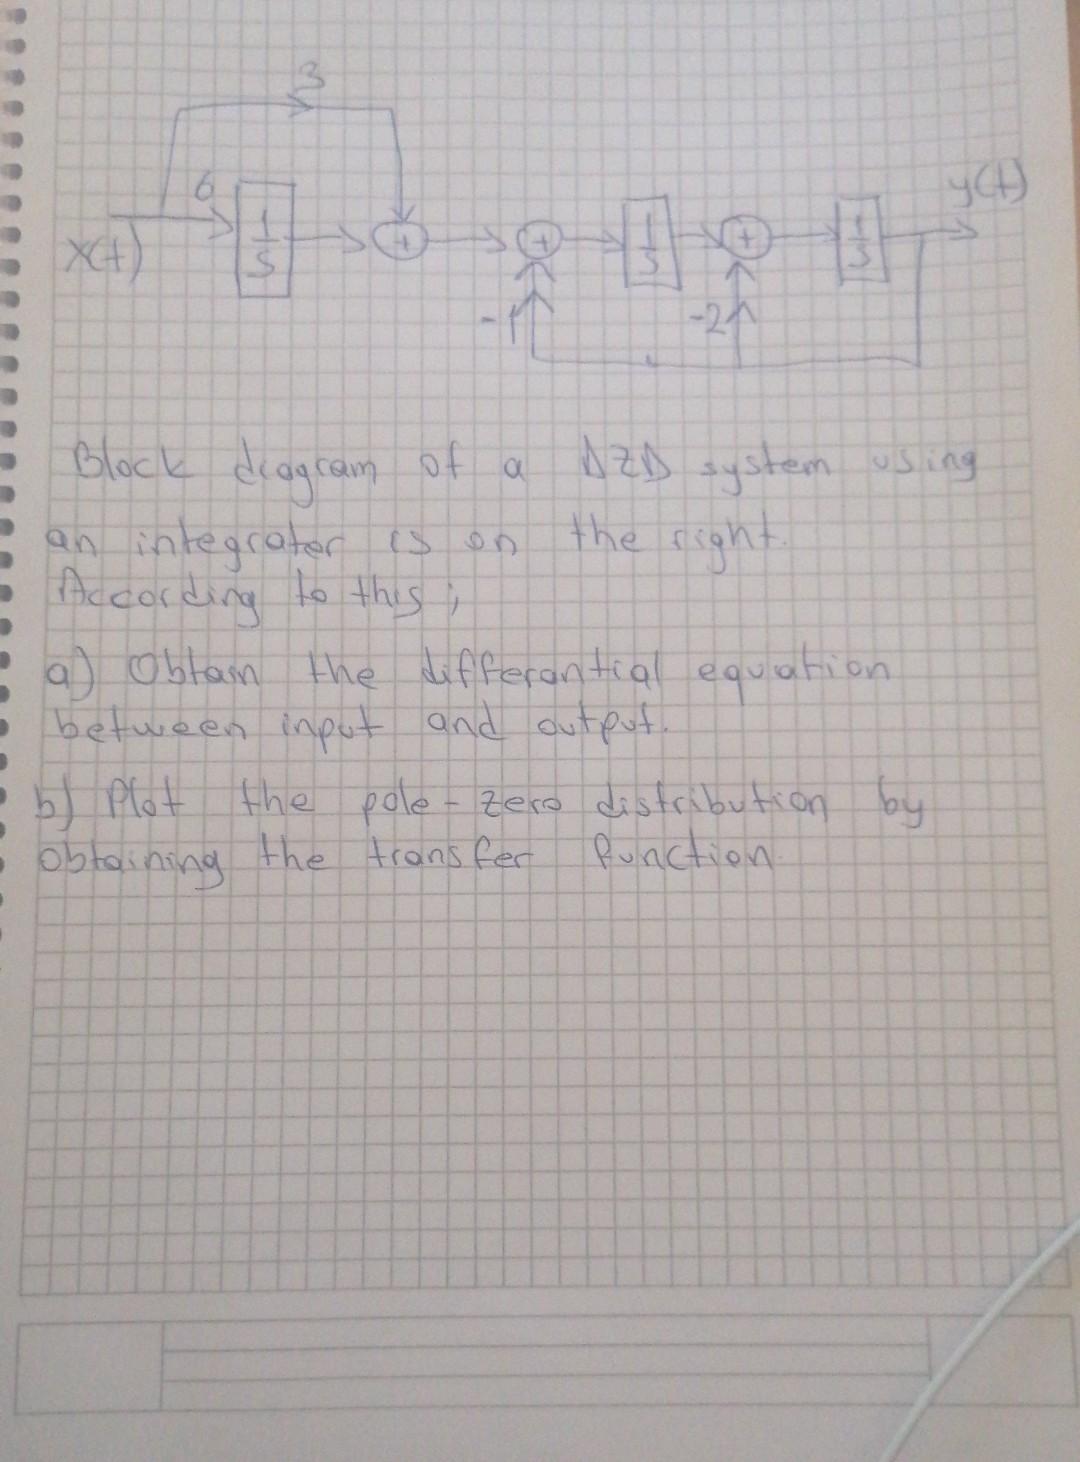 3
6
x(t)
1/s
+
+
1/s
+
1/s
y(t)
-1
-2
Block diagram of a DZD system using
an integrater is on the right.
According to this;
a) Obtain the differantial equation
between input and output.
b) Plot the pole-zero distribution by
obtaining the transfer function.